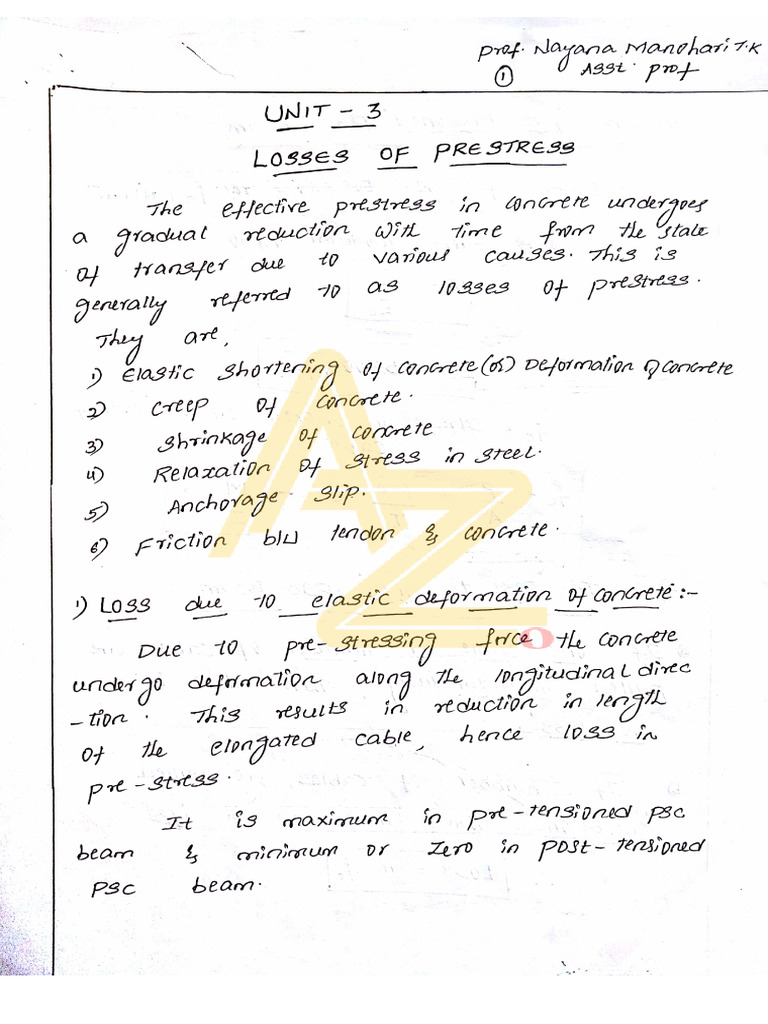 Prof. Nayana Manohari T.K
① Asst. prof
UNIT - 3
LOSSES OF PRESTRESS
The effective prestress in concrete undergoes
a gradual reduction with time from the state
of transfer due to various causes. This is
generally referred to as losses of prestress.
They are,
1) Elastic shortening of concrete (or) Deformation of concrete
2) creep of concrete.
3) Shrinkage of concrete
4) Relaxation of stress in steel.
5) Anchorage slip.
6) Friction b/w tendon & concrete.
1) Loss due to elastic deformation of concrete :-
Due to pre-stressing force the concrete
undergo deformation along the longitudinal direc
-tion. This results in reduction in length
of the elongated cable, hence loss in
pre-stress.
It is maximum in pre-tensioned psc
beam & minimum or zero in post-tensioned
psc beam.
AZ